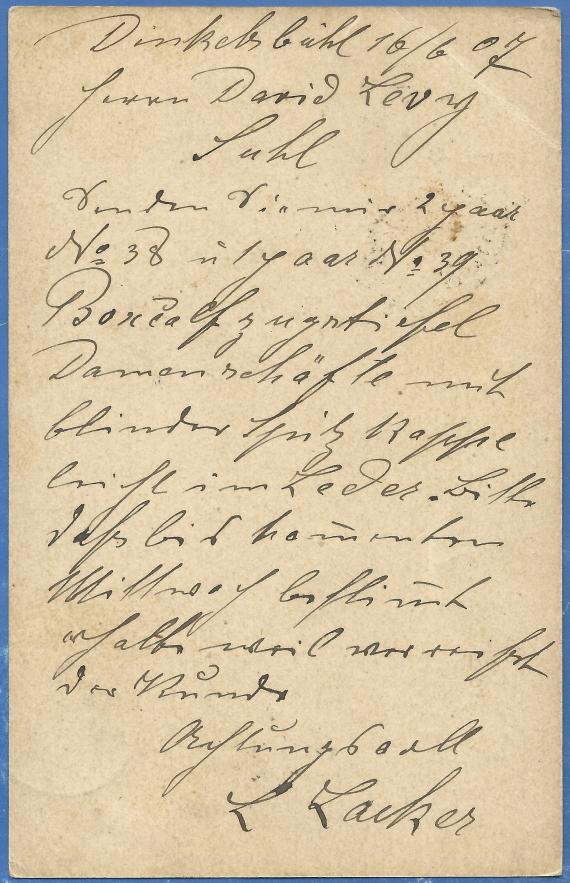 Dinkelsbühl 16/6 07
Herrn David Levy
Suhl
Senden Sie mir 2 paar
No 38 u 1 paar No 39
Boxcalf zugstiefel
Damenschäfte mit
blinder Spitz kappe
leicht im Leder. Bitte
daß bis kom̄enten
Mittwoch bestim̄t
erhalte weil verreist
der Kunde
Achtungsvoll
L Zacker